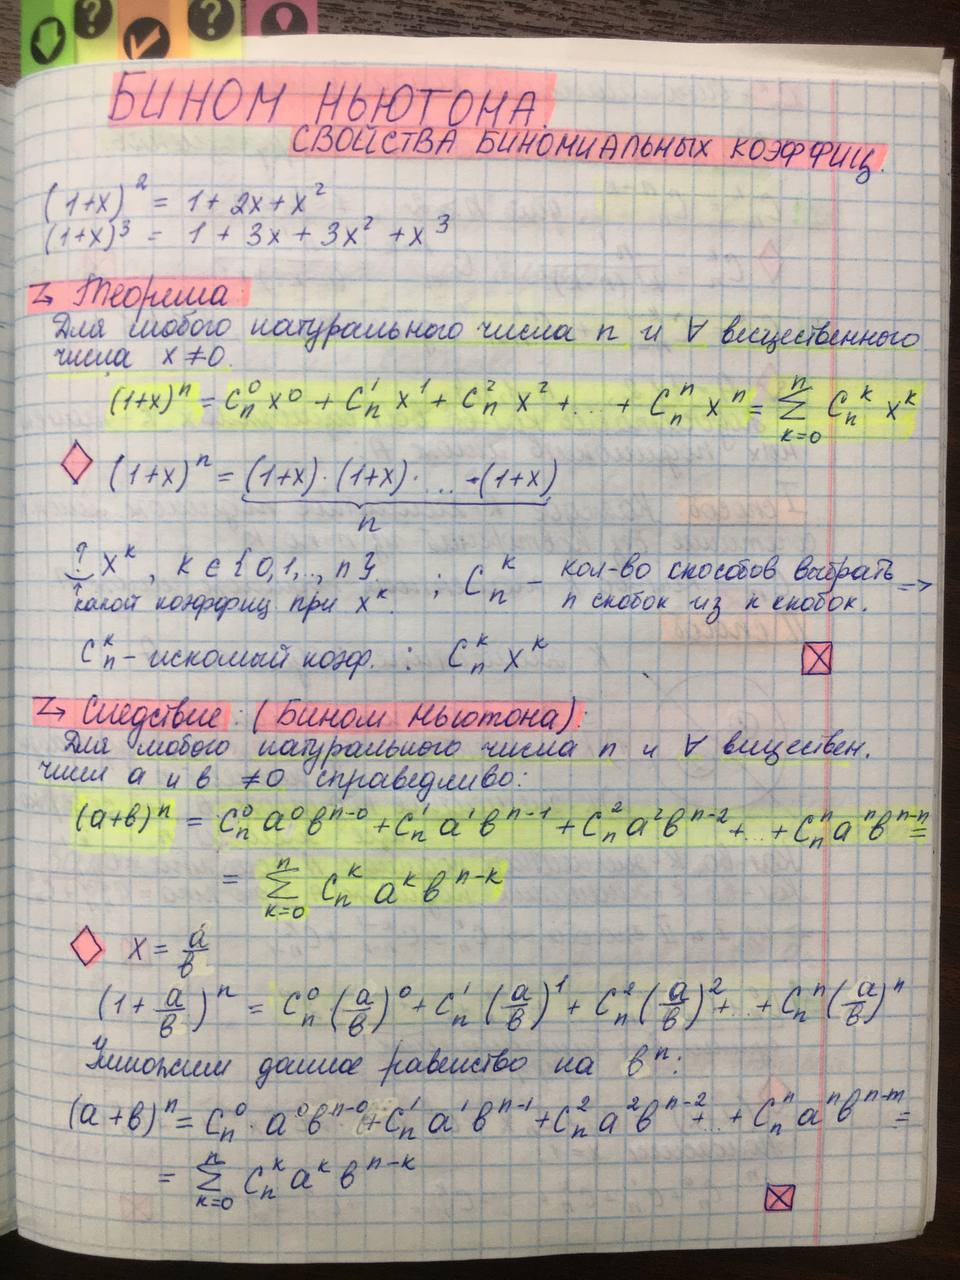 БИНОМ НЬЮТОНА.
СВОЙСТВА БИНОМИАЛЬНЫХ КОЭФФИЦ.
(1+x)² = 1 + 2x + x²
(1+x)³ = 1 + 3x + 3x² + x³
Теорема
Для любого натурального числа n и ∀ вещественного
числа x ≠ 0.
(1+x)ⁿ = C_n^0 x^0 + C_n^1 x^1 + C_n^2 x^2 + ... + C_n^n x^n = ∑_{k=0}^{n} C_n^k x^k
(1+x)ⁿ = (1+x)·(1+x)· ... ·(1+x)
n
? x^k, k ∈ {0,1,..,n}. ; C_n^k – кол-во способов выбрать ⇒
какой коэффиц при x^k. n скобок из к скобок.
C_n^k – искомый коэф. : C_n^k x^k
Следствие: (Бином Ньютона):
Для любого натурального числа n и ∀ веществен.
чисел a и b ≠ 0 справедливо:
(a+b)ⁿ = C_n^0 a^0 b^{n-0} + C_n^1 a^1 b^{n-1} + C_n^2 a^2 b^{n-2} + ... + C_n^n a^n b^{n-n} =
= ∑_{k=0}^{n} C_n^k a^k b^{n-k}
x = a/b
(1 + a/b)ⁿ = C_n^0 (a/b)^0 + C_n^1 (a/b)^1 + C_n^2 (a/b)^2 + .. + C_n^n (a/b)^n
Умножим данное равенство на bⁿ:
(a+b)ⁿ = C_n^0 · a^0 b^{n-0} + C_n^1 a^1 b^{n-1} + C_n^2 a^2 b^{n-2} + .. + C_n^n a^n b^{n-m} =
= ∑_{k=0}^{n} C_n^k a^k b^{n-k}